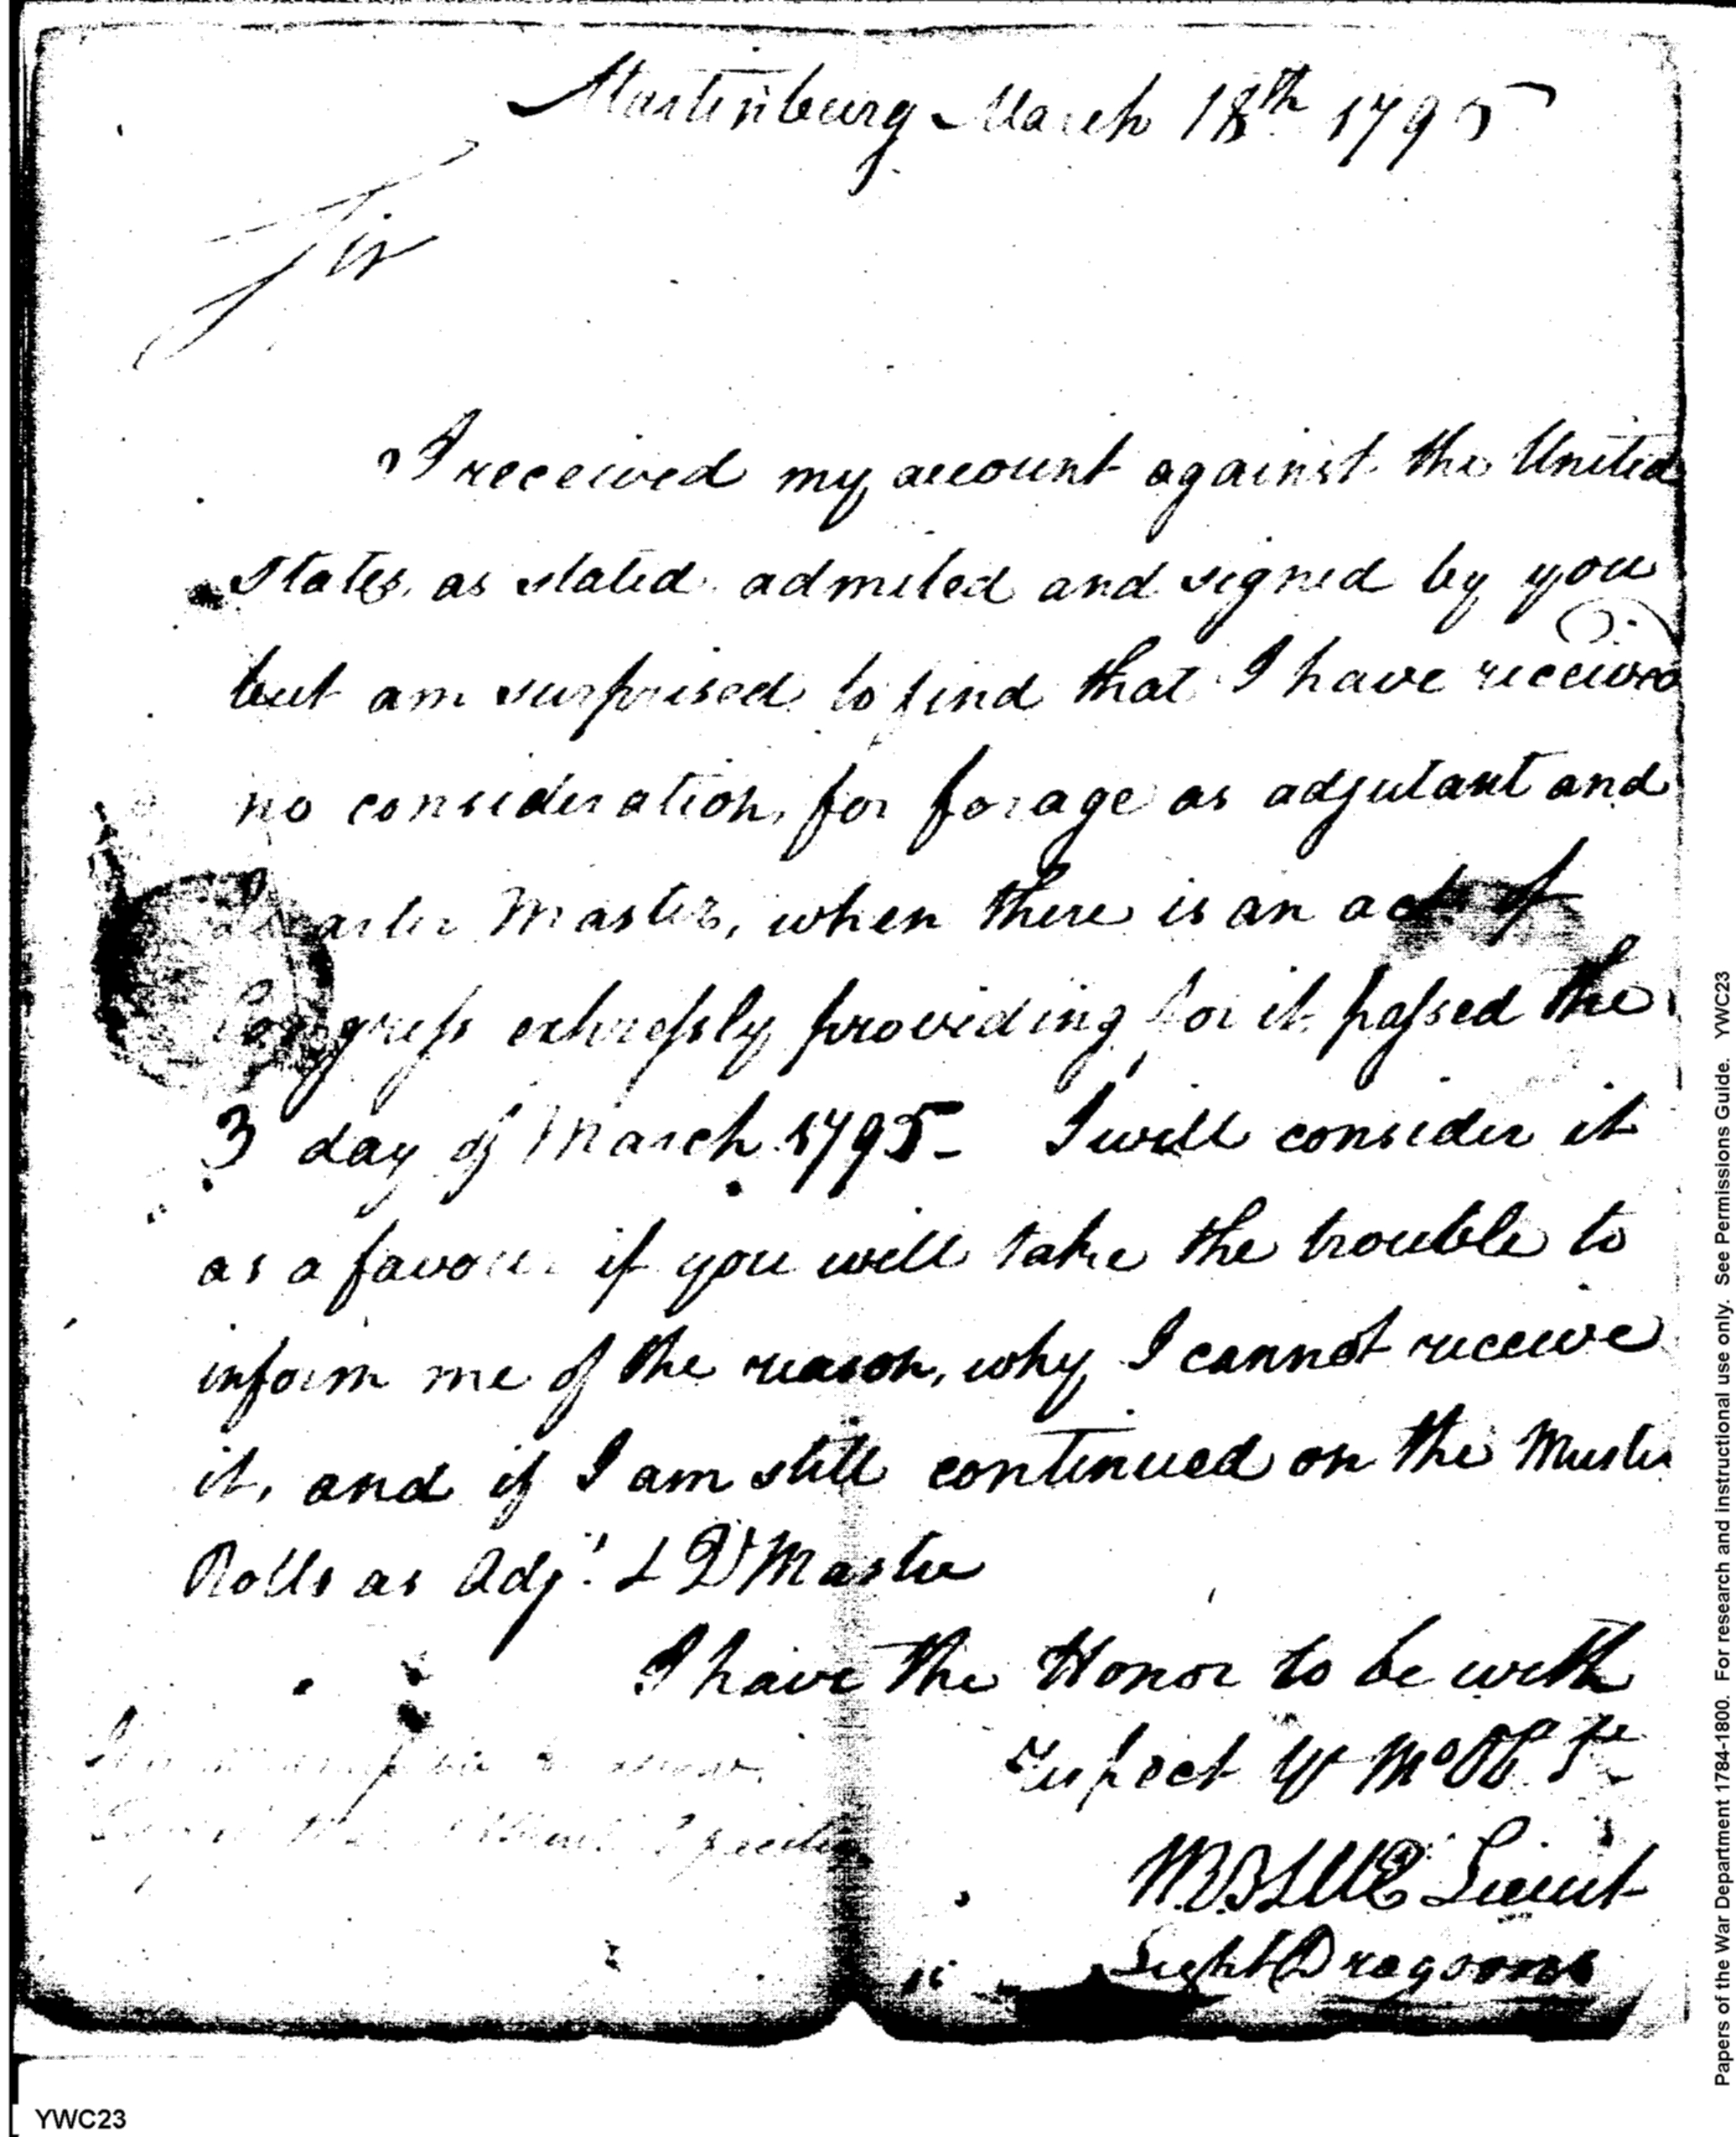 Martinburg March 18th 1795
Sir
I received my account against the United
States, as stated admited and signed by you
but am surprised to find that I have received
no consideration, for forage as adjutant and
Quarter Master, when there is an act of
Congress expressly providing for it passed the
3 day of March 1795 - I will consider it
as a favour if you will take the trouble to
inform me of the reason, why I cannot receive
it, and if I am still continued on the Muster
Rolls as Adjt. & Qr Master
I have the Honor to be with
respect Yr Mo Ob. Se
W. BLUE Lieut
Light Dragoons
YWC23
Papers of the War Department 1784-1800. For research and instructional use only. See Permissions Guide. YWC23